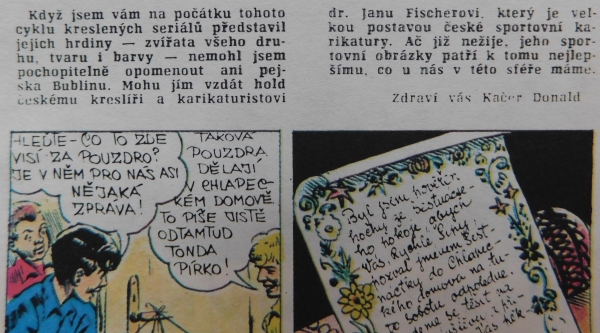 Když jsem vám na počátku tohoto
cyklu kreslených seriálů představil
jejich hrdiny — zvířata všeho dru-
hu, tvaru i barvy — nemohl jsem
pochopitelně opomenout ani pej-
ska Bublinu. Mohu jím vzdát hold
českému kreslíři a karikaturistovi
dr. Janu Fischerovi, který je vel-
kou postavou české sportovní ka-
rikatury. Ač již nežije, jeho spor-
tovní obrázky patří k tomu nejlep-
šímu, co u nás v této sféře máme.
Zdraví vás Kačer Donald
HLEĎTE-CO TO ZDE
VISÍ ZA POUZDRO?
JE V NĚM PRO NÁS ASI
NĚJAKÁ
ZPRÁVA!
TAKOVÁ
POUZDRA
DĚLAJÍ
V CHLAPEC-
KÉM DOMOVĚ.
TO PÍŠE JISTĚ
ODTAMTUD
TONDA
PÍRKO!
Byl jsem pověřen
hochy ze Sedmičé-
ho pokoje, abych
Vás, Rychlé Šípy,
pozval jménem Šest-
náctky do Chlapec-
kého domova na tu
to sobotu odpoledne.
se těšit na